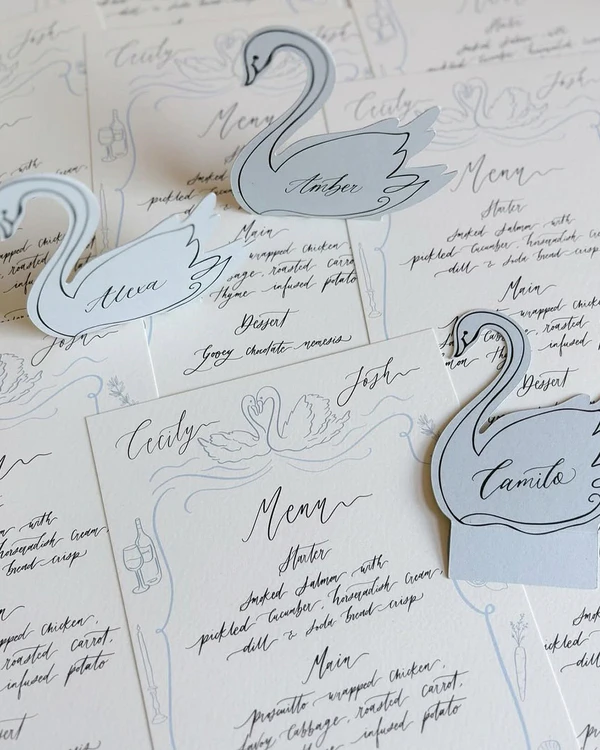 Josh
Cecily
Menu
Starter
Smoked Salmon
pickled
Main
wrapped chicken
roasted carrot
thyme infused potato
Dessert
Gooey chocolate nemesis
Amber
Alexa
Cecily
Josh
Menu
Starter
Smoked Salmon with
pickled cucumber, horseradish cream
dill & soda bread crisp
Main
Dessert
Camilo
Cecily
Josh
Menu
Starter
Smoked Salmon with
pickled cucumber, horseradish cream,
dill & soda bread crisp
Main
prosciutto wrapped chicken,
Savoy cabbage, roasted carrot,
thyme infused potato
with
horseradish cream,
bread crisp
wrapped chicken,
roasted carrot,
infused potato